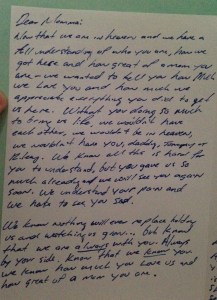 Dear Momma:
Now that we are in heaven and we have a
full understanding of who you are, how we
got here and how great of a mom you
are - we wanted to tell you how much
we love you and how much we
appreciate everything you did to get
us here. Without you doing so much
to bring us life we wouldn't have
each other, we wouldn't be in heaven,
we wouldn't have you, daddy, or
We know all this is hard for
you to understand, but you gave us so
much already and we will see you again
soon. We understand your pain and
we hate to see you sad.
We know nothing will ever replace holding
us and watching us grow... but know
that we are always with you. Always
by your side. Know that we know you
we know how much you love us and
how great of a mom you are.